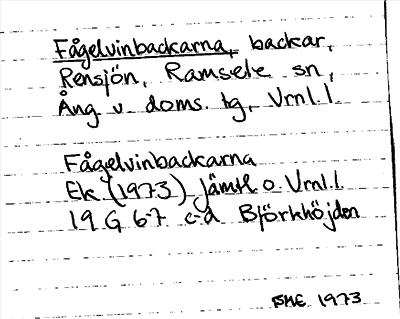 Fågelvinbackarna, backar,
Rensjön, Ramsele sn,
Ång v. doms. tg, Vrnl.l.
Fågelvinbackarna
Ek (1973) Jämtl o. Vrnl.l.
19 G 6-7 c-d Björkhöjden
BME 1973